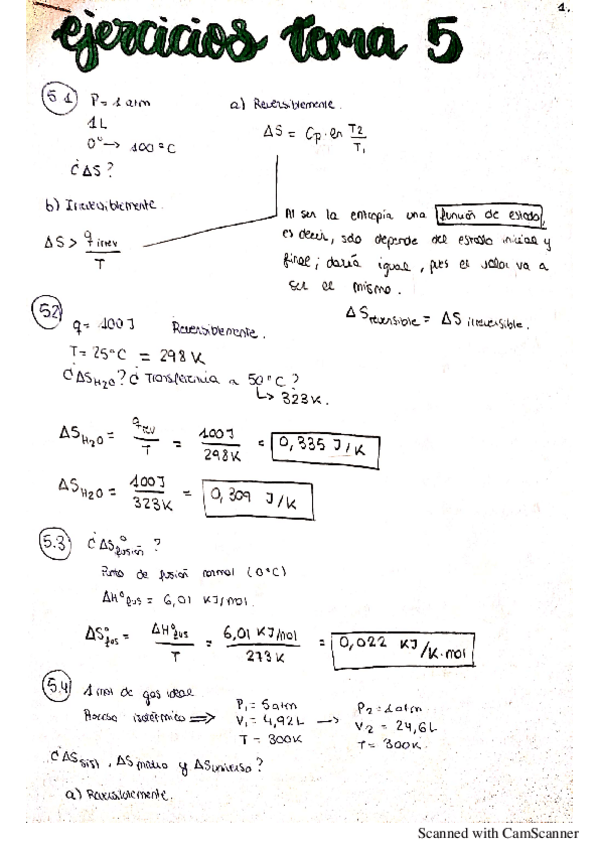 1.
ejercicios tema 5
5.1 P = 1 atm a) Reversiblemente.
1L ΔS = Cp · ln T2/T1
0° → 100°C
¿ΔS?
b) Irreversiblemente.
ΔS > q irrev / T
Al ser la entropía una función de estado,
es decir, solo depende del estado inicial y
final; daría igual, pues el valor va a
ser el mismo.
ΔS reversible = ΔS irreversible.
5.2 q = 100 J Reversiblemente.
T = 25°C = 298 K
¿ΔS H2O? ¿Transferencia a 50°C?
↳ 323K.
ΔS H2O = q rev / T = 100 J / 298 K = 0,335 J/K
ΔS H2O = 100 J / 323 K = 0,309 J/K
5.3 ¿ΔS° fusión?
Punto de fusión normal (0°C)
ΔH° fus = 6,01 KJ/mol.
ΔS° fus = ΔH° fus / T = 6,01 KJ/mol / 273 K = 0,022 KJ/K·mol
5.4 1 mol de gas ideal.
Proceso isotérmico ⟹ P1 = 5 atm → P2 = 1 atm
V1 = 4,92L V2 = 24,6L
T = 300K T = 300K.
¿ΔS sist, ΔS medio y ΔS universo?
a) Reversiblemente.
Scanned with CamScanner